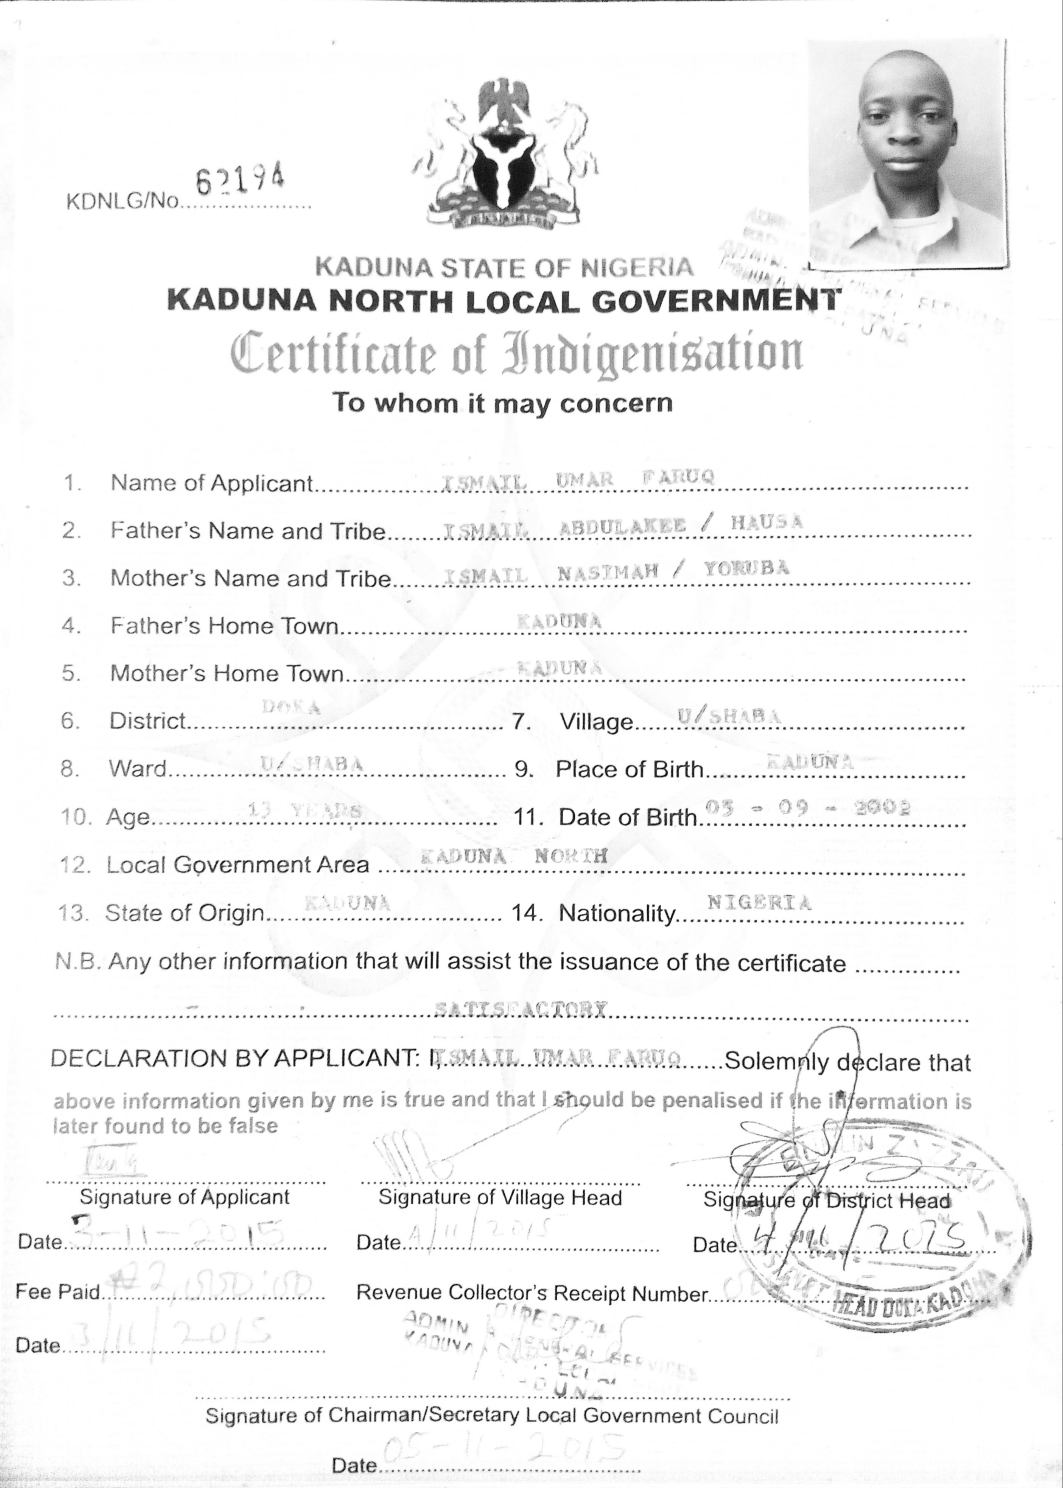 KDNLG/No. 62194
KADUNA STATE OF NIGERIA
KADUNA NORTH LOCAL GOVERNMENT
Certificate of Indigenisation
To whom it may concern
1. Name of Applicant ISMAIL UMAR FARUQ
2. Father's Name and Tribe ISMAIL ABDULAKEE / HAUSA
3. Mother's Name and Tribe ISMAIL NASIMAH / YORUBA
4. Father's Home Town KADUNA
5. Mother's Home Town KADUNA
6. District DOKA 7. Village U/SHABA
8. Ward U/SHABA 9. Place of Birth KADUNA
10. Age 13 YEARS 11. Date of Birth 05 - 09 - 2002
12. Local Government Area KADUNA NORTH
13. State of Origin KADUNA 14. Nationality NIGERIA
N.B. Any other information that will assist the issuance of the certificate
SATISFACTORY
DECLARATION BY APPLICANT: I, ISMAIL UMAR FARUQ Solemnly declare that
above information given by me is true and that I should be penalised if the information is
later found to be false
Signature of Applicant Signature of Village Head Signature of District Head
Date 3-11-2015 Date 4/11/2015 Date 4/11/2015
Fee Paid ₦2,000:00 Revenue Collector's Receipt Number
HEAD DOKA KADUNA
Date 3/11/2015
DIRECTOR
ADMIN & GENERAL SERVICES
KADUNA
Signature of Chairman/Secretary Local Government Council
Date 05-11-2015